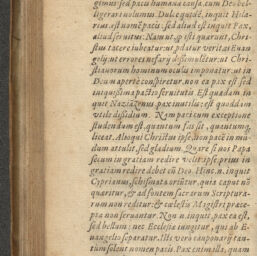 gimus sed pacis humanæ causa, cum Deo bel-
ligerari nolumus. Dulce quidē, inquit Hila-
rius, est nomē pacis: sed aliud est inquit Pax,
aliud servitus: Nam ut, qͥ esti quærunt, Chri-
stus tacere iubeatur: ut pdatur veritas Euan
gelij: ut errores nefarij dissimulētur: ut Chri-
stianorum hominum oculis imponatur: ut in
Deum apertè conspiretur: non ea pax est, sed
iniquissima pactio servitutis. Est quædam in-
quit Naziāzenus pax inutilis: est quoddam
utile dissidium. Nam pari cum exceptione
studendum est, quantum fas sit, quatumq́;
liceat. Alioqui Christus ipse, non pacē in mū-
dum attulit, sed gladium. Quare si nos Papa
secum in gratiam redire velit: ipse prius in
gratiam redire debet cū Deo. Hinc .n. inquit
Cyprianus, schismata oriūtur, quia caput nō
quæritur, & ad fontem sacrarum Scriptura-
rum non reditur: & cælestis Magistri præce-
pta non servantur. Non .n. inquit, pax ea est,
sed bellum: nec Ecclesiæ iungitur, qui ab E-
uangelio separatur. Isti verò cauponari tan-
tum solent nomen pacis. Pax enim illa, quam